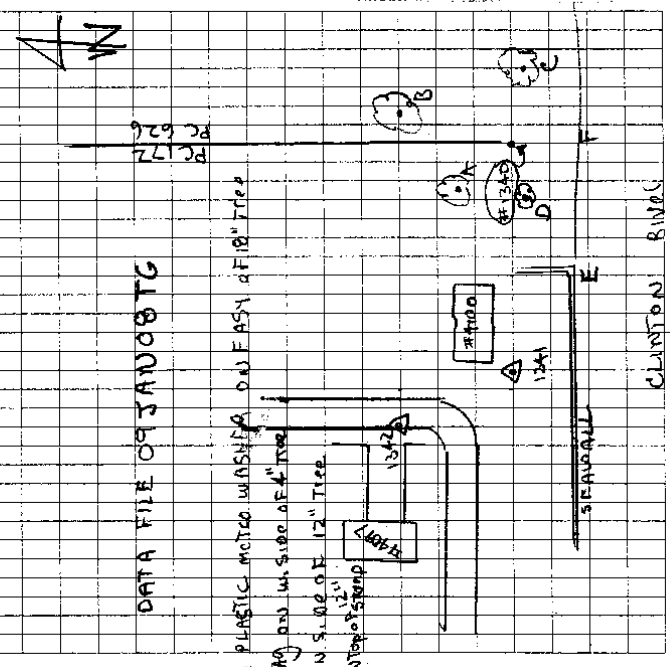 N
PC 626
PC 172
DATA FILE 09JAN08TG
PLASTIC METRO WASHER ON EASY OF 18" Tree
ON W. SIDE OF 4" Tree
SIDE OF 12" Tree
TOP OF 12" STUMP
A
B
C
D
E
F
#1340
#4100
1341
1342
#4097
SEAWALL
CLINTON